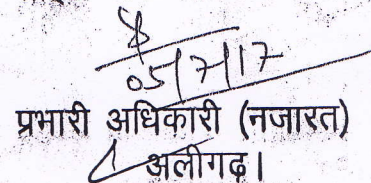 05/7/17
प्रभारी अधिकारी (नजारत)
अलीगढ़।